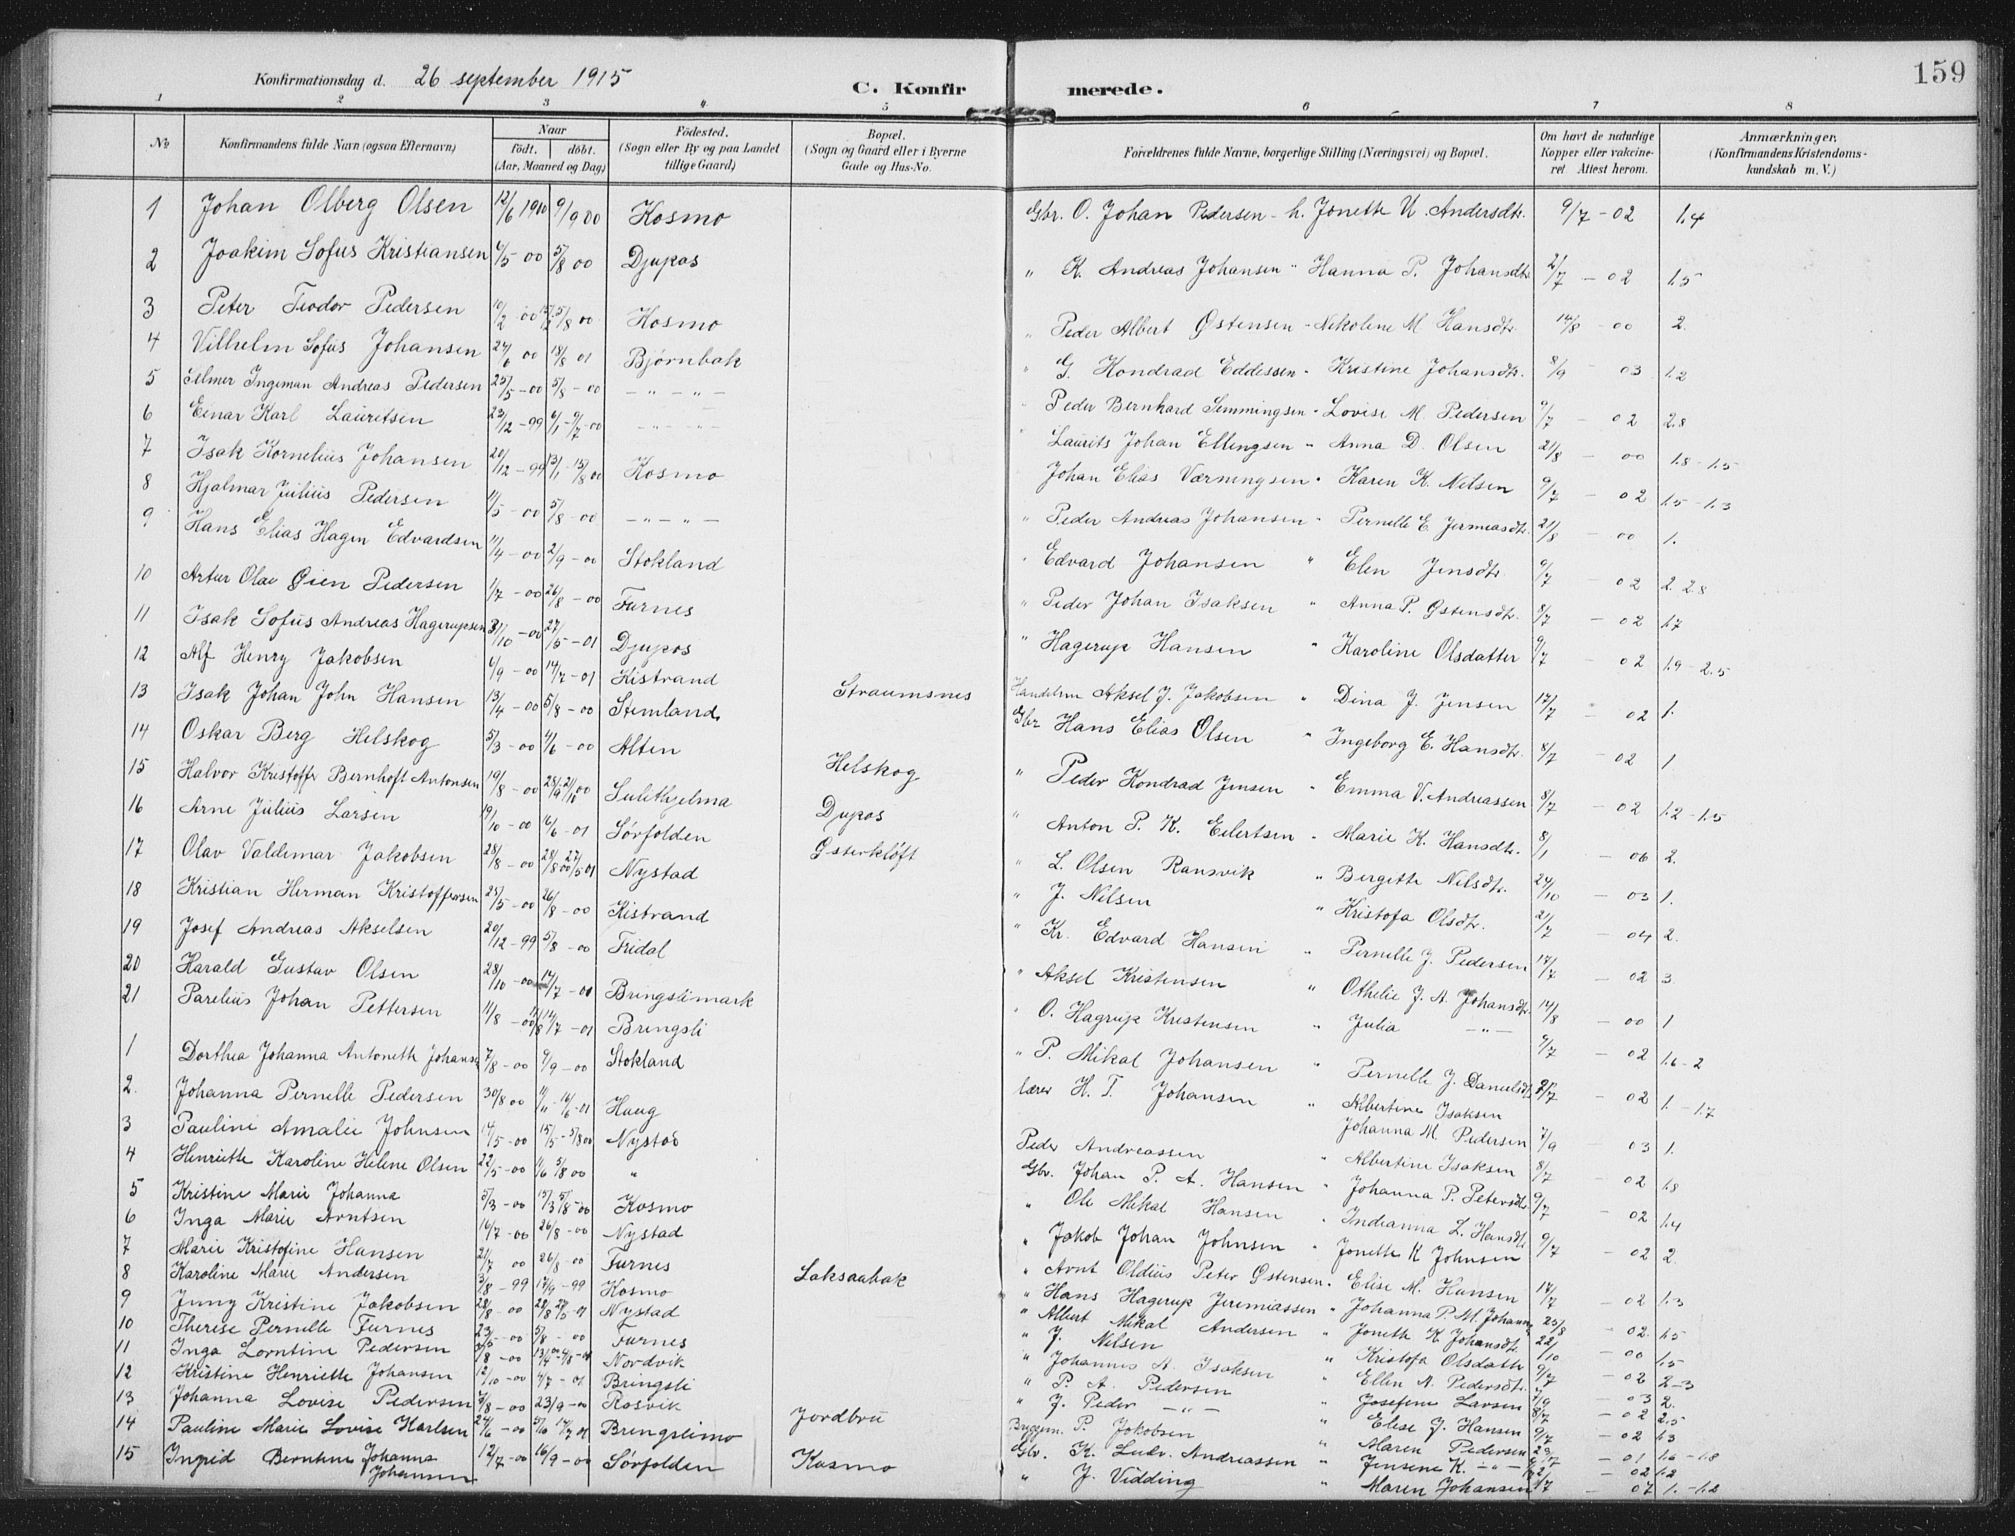 Konfirmationsdag d. 26 september 1915
C. Konfirmerede.
159
1 2 3 4 5 6 7 8
No Konfirmandens fulde Navn (ogsaa Efternavn) Naar født. døbt. (Aar, Maaned og Dag) Födested. (Sogn eller By og paa Landet tillige Gaard) Bopæl. (Sogn og Gaard eller i Byerne Gade og Hus-No. Forældrenes fulde Navne, borgerlige Stilling (Næringsvei) og Bopæl. Om havt de naturlige Kopper eller vakcineret Attest herom. Anmærkninger. (Konfirmandens Kristendomskundskab m. V.)
1 Johan Olberg Olsen 12/6 1900 9/9 00 Kosmo Gbr. O. Johan Pedersen - h. Jonette U. Andersdtr. 9/7 - 02 1.4
2 Joakim Sofus Kristiansen 4/5 00 5/8 00 Djupos " K. Andreas Johansen " Hanna P. Johansdtr 2/7 - 02 1.5
3 Peter Teodor Pedersen 10/2 - 00 5/8 00 Kosmo " Peder Albert Østensen - Nekoline M Hansdtr. 14/8 - 00 2.
4 Vilhelm Sofus Johansen 24/6 00 18/8 01 Bjørnbak " G. Kondrad Eddessen - Kristine Johansdtr. 8/9 - 03 1.2
5 Hilmer Ingeman Andreas Pedersen 25/5 - 00 5/8 - 00 - " - " - Peder Bernhard Semmingsen - Lovise M. Pedersen 9/7 - 02 2.8
6 Einar Karl Lauritsen 23/12 - 99 6/1 - 9/7 - 00 - " - " - Laurits Johan Ellingsen " Anna D. Olsen 21/8 - 00 1.8 - 1.5
7 Isak Kornelius Johansen 20/12 - 99 13/1 - 15/8 00 Kosmo Johan Elias Værningsen - Karen K. Nilsen 9/7 - 02 1.5 - 1.3
8 Hjalmar Julius Pedersen 11/5 - 00 5/8 - 00 - " - " - " Peder Andreas Johansen - Pernelle E. Jermiasdtr. 21/8 - 00 1.
9 Hans Elias Hagen Edvardsen 11/4 - 00 2/9 - 00 Stokland " Edvard Johansen " Elen Jensdtr 9/7 - 02 2. 2.8
10 Artur Olav Øien Pedersen 1/7 - 00 26/8 - 00 Furnes " Peder Johan Isaksen " Anna P. Østensdtr. 9/7 - 02 1.7
11 Isak Sofus Andreas Hagerupsen 31/10 - 00 27/5 - 01 Djupos " Hagerup Hansen " Karoline Olsdatter 9/7 - 02 1.9 - 2.5
12 Alf Henry Jakobsen 6/9 - 00 14/7 - 01 Kistrand Straumsnes Handelsm Aksel J. Jakobsen " Dina J. Jensen 17/7 - 02 1.
13 Isak Johan John Hansen 13/4 - 00 5/8 - 00 Stemland Gbr Hans Elias Olsen " Ingeborg E. Hansdtr. 8/7 - 02 1
14 Oskar Berg Helskog 5/3 - 00 4/6 - 00 Alten Helskog " Peder Kondrad Jensen - Emma V. Andreassen 8/7 - 02 1.2 - 1.5
15 Halvor Kristoffer Bernhoft Antonsen 19/8 - 00 23/9 21/10 00 Sulithjelma Djupos " Anton P. K. Eilertsen - Marie K. Hansdtr. 8/1 - 06 2.
16 Arne Julius Larsen 19/10 - 00 16/6 - 01 Sørfolden Østerkløft " L. Olsen Ransvik " Bergitte Nilsdtr. 24/10 - 03 1.
17 Olav Valdemar Jakobsen 28/8 - 00 28/8 00 27/5 01 Nystad " J. Nilsen " Kristofa Olsdtr. 21/7 - 04 2.
18 Kristian Herman Kristoffersen 25/5 - 00 26/8 - 00 Kistrand " Kr. Edvard Hansen " Pernelle J. Pedersen 17/7 - 02 3
19 Josef Andreas Akselsen 20/12 - 99 5/8 - 00 Tridal " Aksel Kristensen " Othelie J. A. Johansdtr. 14/8 - 00 1
20 Harald Gustav Olsen 28/10 - 00 17/7 - 01 Bringslimark " O. Hagrup Kristensen " Julia - " - 9/7 - 02 1.6 - 2
21 Parelius Johan Pettersen 11/8 - 00 14/7 - 01 Bringsli " P. Mikal Johansen " Pernelle J. Danielsdtr 21/7 - 02 1. - 1.7
1 Dorthea Johanna Antonette Johansen 7/8 - 00 9/9 - 00 Stokland lærer H. T. Johansen " Albertine Isaksen
2. Johanna Pernelle Pedersen 30/8 00 11/11 - 16/6 - 01 Haug Johanna M. Pedersen 7/9 - 03 1.
3 Pauline Amalie Johnsen 14/5 - 00 15/5 - 5/8 00 Nystad Peder Andreassen " Albertine Isaksen 8/7 - 02 1.8
4 Henriette Karoline Helene Olsen 22/5 - 00 11/6 5/8 00 " Gbr. Johan P. A. Hansen " Johanna P. Petersdtr 9/7 - 02 1.4
5 Kristine Marie Johanna 5/3 - 00 15/3 5/8 - 00 Kosmo " Ole Mikal Hansen " Indianna L. Hansdtr 9/7 - 02 2.
6 Inga Marie Arntsen 16/7 - 00 26/8 - 00 Nystad " Jakob Johan Johnsen " Jonette K Johnsen
7 Marie Kristofine Hansen 21/7 00 26/8 - 00 Furnes " Arnt Oldius Peter Østensen - Elise M. Hansen 17/7 - 02 1.3
8 Karoline Marie Andersen 3/8 - 99 17/9 - 99 Kosmo Laksaabak " Hans Hagerup Jeremiassen " Johanna P. M. Johann 23/8 - 02. 1.5
9 Jenny Kristine Jakobsen 28/8 - 00 28/8 27/5 - 01 Nystad " Albert Mikal Andersen " Jonette K Johansdtr. 22/10 - 00 1.5
10 Therese Pernelle Furnes 23/5 - 00 5/8 - 00 Furnes " J. Nilsen " Kristofa Olsdatter 9/7 - 02 2 - 3
11 Inga Lorntine Pedersen 2/8 - 00 Nordvik " Johannes A. Isaksen " Ellen A. Pedersdtr. 7/9 - 03 2.
12 Kristine Henriette Johansen 12/10 - 00 4/7 - 01 Bringsli " P. A. Pedersen " Josefine Larsen 8/7 - 02 2.5
13 Johanna Lovise Pedersen 4/8 - 00 23/9 - 00 Røsvik " J. Peder - " - " Elise J. Hansen 9/7 - 02 1.3
14 Pauline Marie Lovise Karlsen 24/6 - 00 5/10 14/7 01 Bringslimo Jordbru Byggem. P. Jakobsen " Maren Pedersen - 01 1.6 - 1.8
15 Ingrid Berntine Johanna Johansen 12/7 - 00 16/9 - 00 Sørfolden Kosmo Gbr. K. Ludv. Andreassen " Jensene K. - " - - 02 1.2
" J. Vidding " Maren Johansen 17 - 07 1. - 1.2